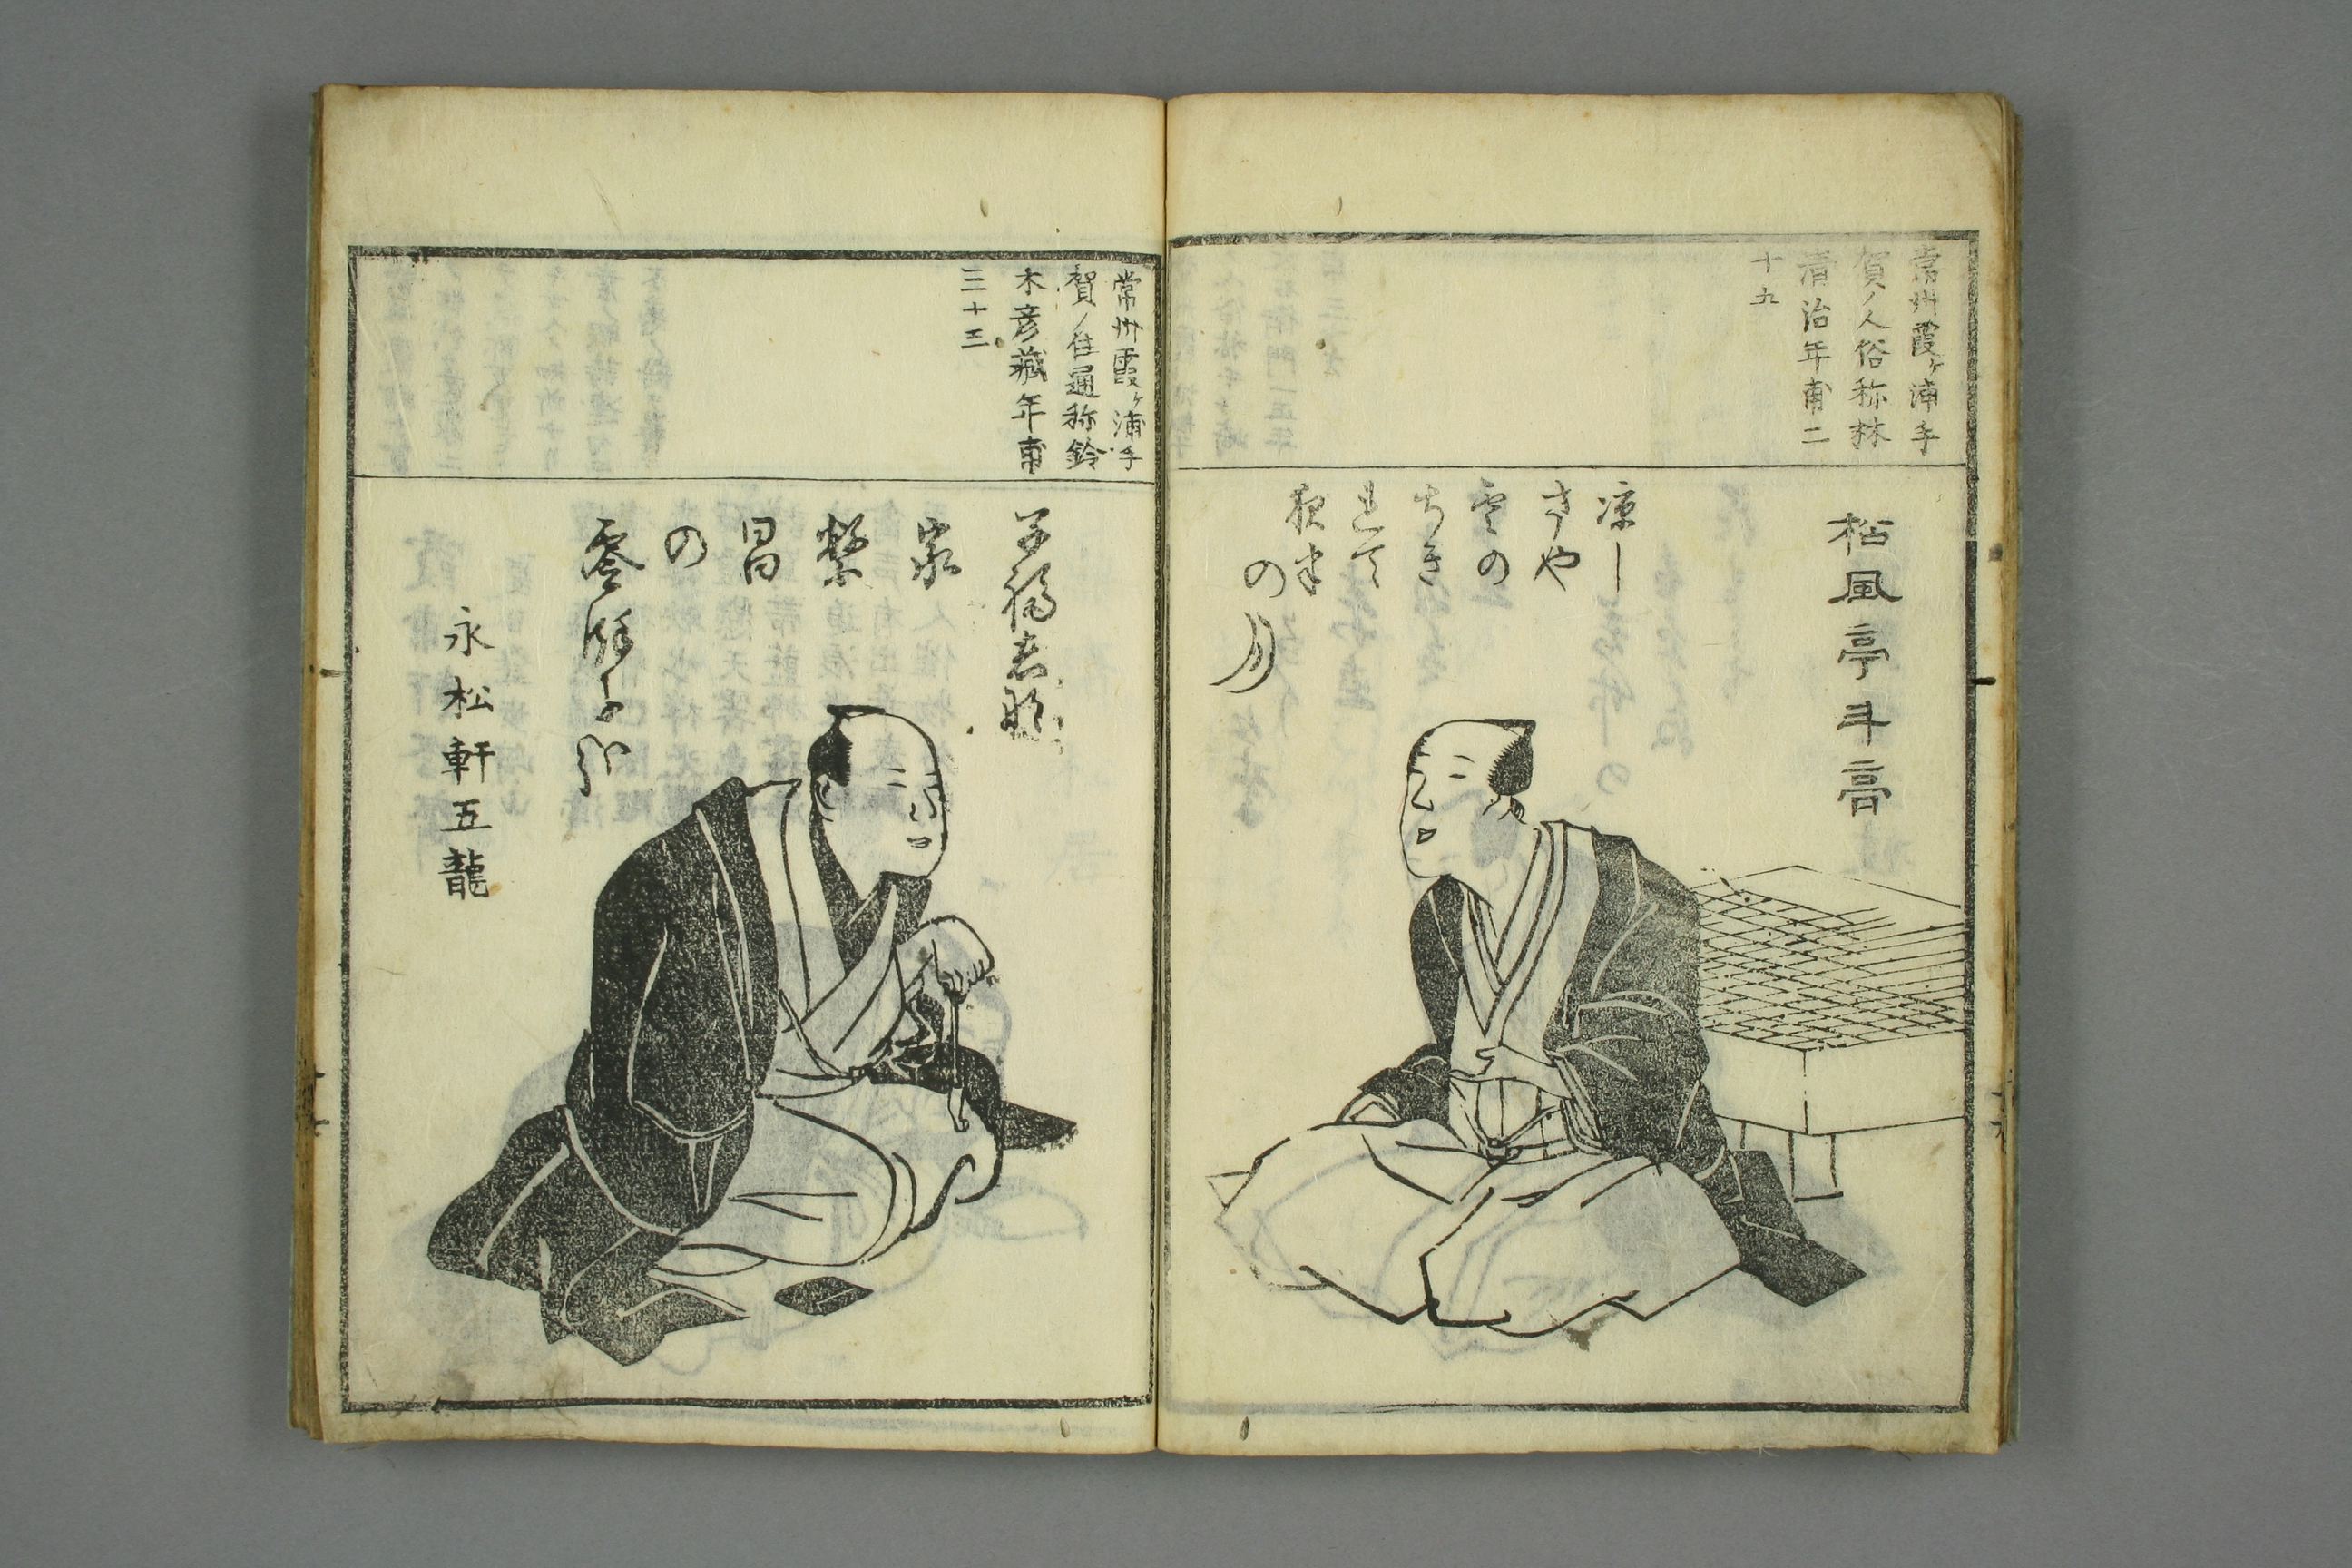 常州霞ヶ浦手
賀ノ人俗称林
清治年甫二
十九
松風亭斗高
凉し
さや
雲の
ちき
れて
夜半
の月
常州霞ヶ浦手
賀ノ住通称鈴
木彦藏年甫
三十三
家
繁
昌
の
永松軒五龍